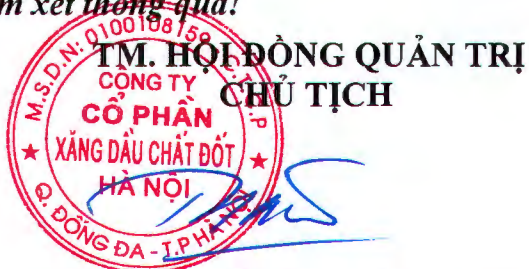 xét thông qua!
TM. HỘI ĐỒNG QUẢN TRỊ
CHỦ TỊCH
M.S.D.N: 0100108159 - C.T.C.P
CÔNG TY
CỔ PHẦN
XĂNG DẦU CHẤT ĐỐT
HÀ NỘI
Q. ĐỐNG ĐA - T.P HÀ NỘI